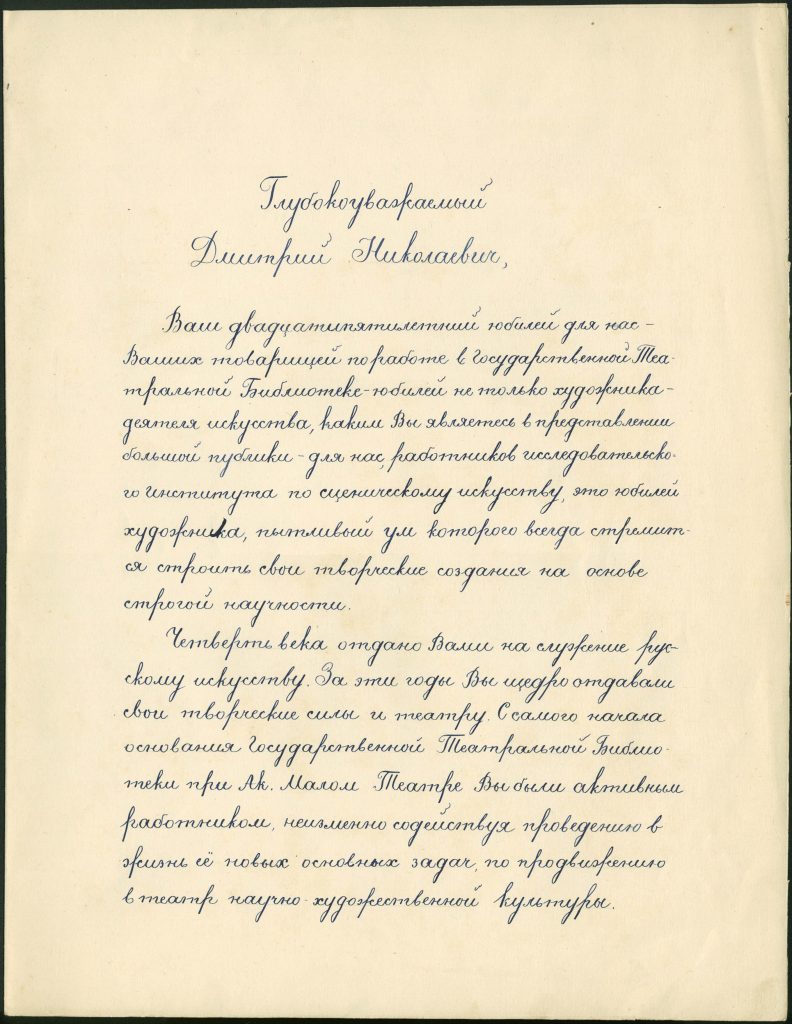 Глубокоуважаемый
Дмитрий Николаевич,
Ваш двадцатипятилетний юбилей для нас –
Ваших товарищей по работе в Государственной Теа-
тральной Библиотеке – юбилей не только художника –
деятеля искусства, каким Вы являетесь в представлении
большой публики – для нас, работников исследовательско-
го института по сценическому искусству, это юбилей
художника, пытливый ум которого всегда стремит-
ся строить свои творческие создания на основе
строгой научности.
Четверть века отдано Вами на служение рус-
скому искусству. За эти годы Вы щедро отдавали
свои творческие силы и театру. С самого начала
основания Государственной Театральной Библио-
теки при Ак. Малом Театре Вы были активным
работником, неизменно содействуя проведению в
жизнь её новых основных задач, по продвижению
в театр научно-художественной культуры.